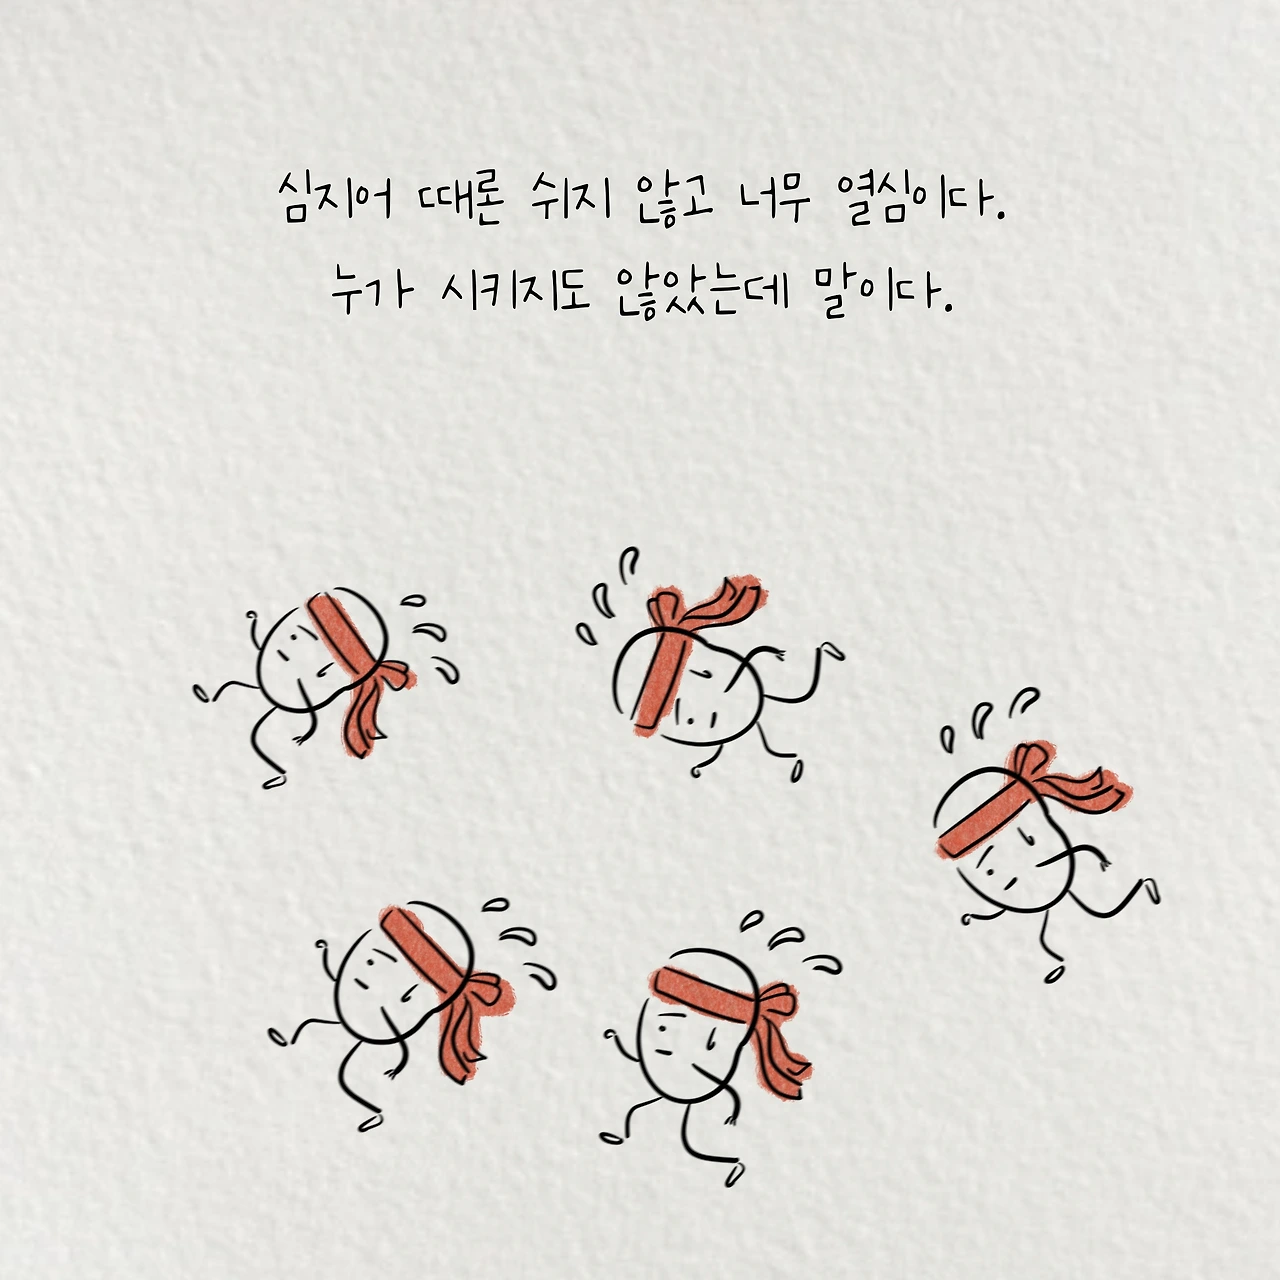 심지어 때론 쉬지 않고 너무 열심이다.
누가 시키지도 않았는데 말이다.